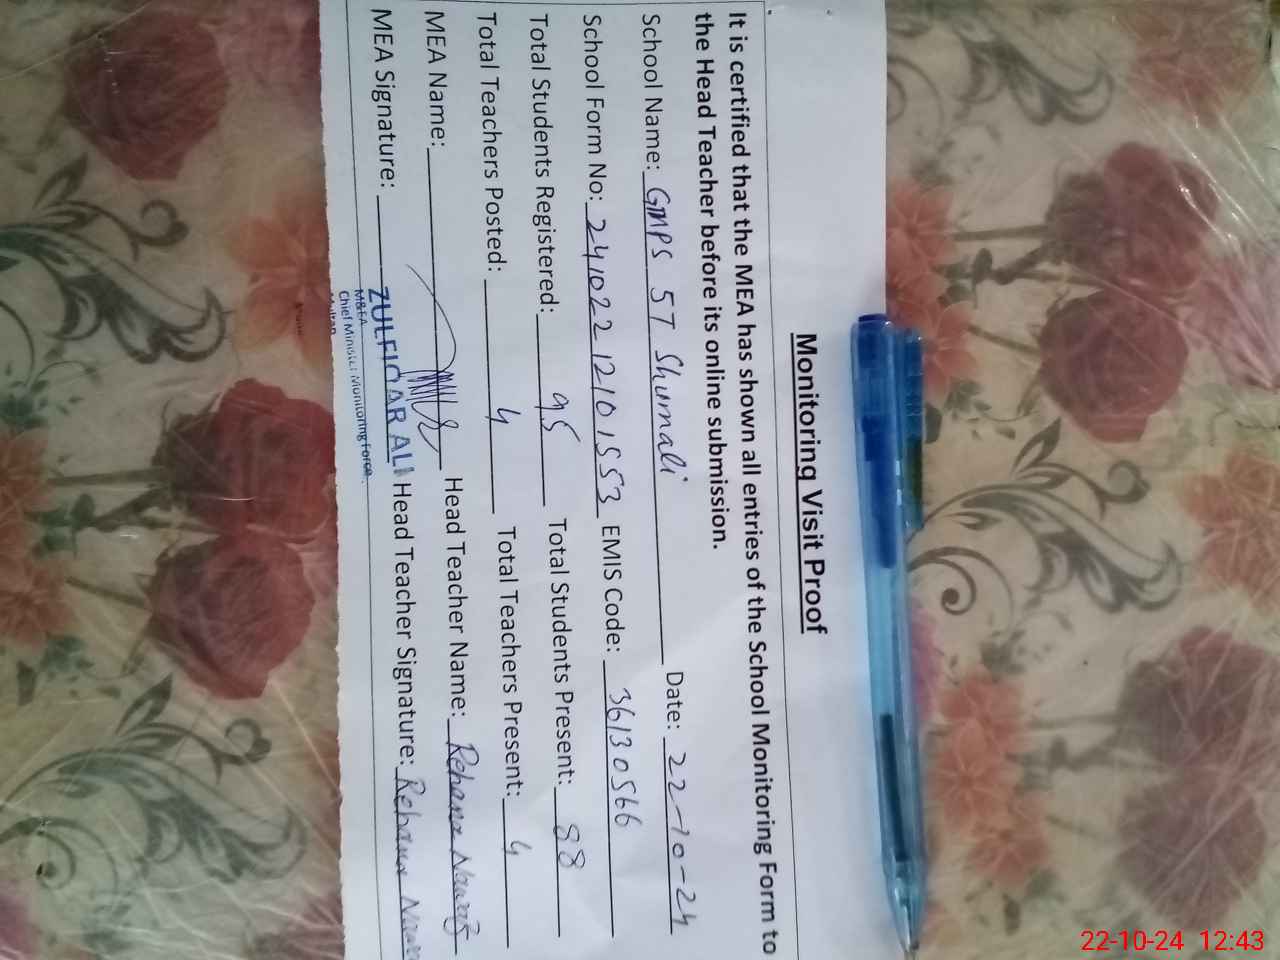 Monitoring Visit Proof
It is certified that the MEA has shown all entries of the School Monitoring Form to
the Head Teacher before its online submission.
School Name: GMPS 5T Shumali Date: 22-10-24
School Form No: 24102212101553 EMIS Code: 36130566
Total Students Registered: 95 Total Students Present: 88
Total Teachers Posted: 4 Total Teachers Present: 4
MEA Name: Head Teacher Name: Rehana Nawaz
MEA Signature: ZULFIQAR ALI Head Teacher Signature: Rehana
M&EA
Chief Minister Monitoring Force
Multan
22-10-24 12:43